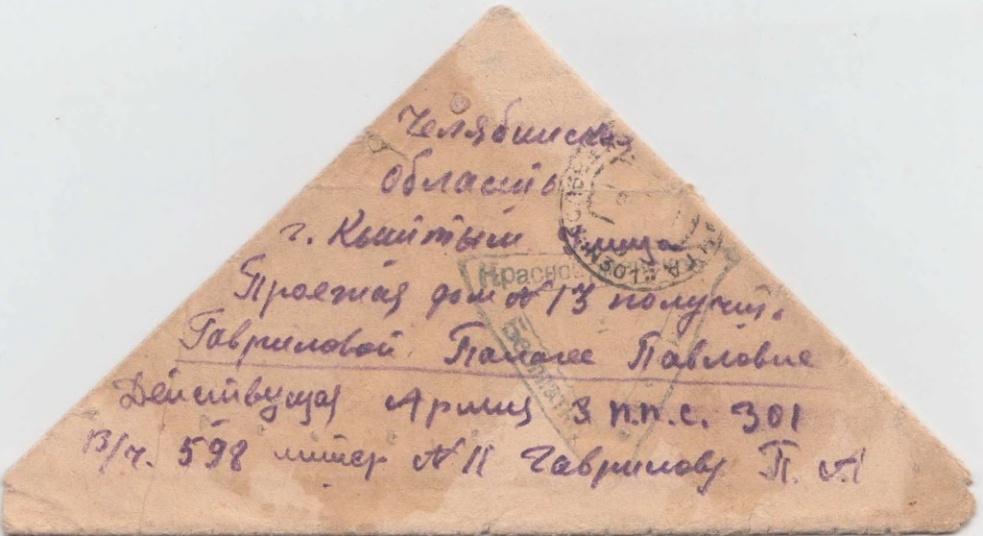 Челябинская
Область
г. Кыштым улица
Проезжая дом № 13 получит.
Гавриловой Павловне
Действующая Армия 3 п.п.с. 301
в/ч. 598 литер № 11 Гаврилову П. А
Красноарм
Бесплатно